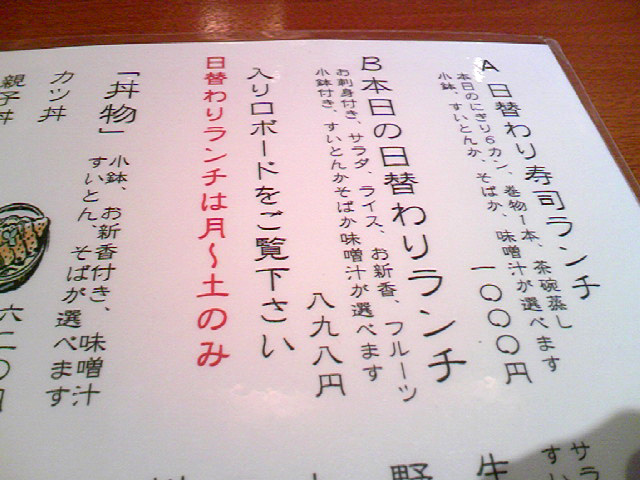 A 日替わり寿司ランチ
本日のにぎり6カン、巻物1本、茶碗蒸し
小鉢、すいとんか、そばか、味噌汁が選べます
一〇〇〇円
B 本日の日替わりランチ
お刺身付き、サラダ、ライス、お新香、フルーツ
小鉢付き、すいとんかそばか味噌汁が選べます
八九八円
入り口ボードをご覧下さい
日替わりランチは月～土のみ
「丼物」
小鉢、お新香付き、味噌汁
すいとん、そばが選べます
カツ丼
親子丼
六二〇円
サラ
すい
牛
野